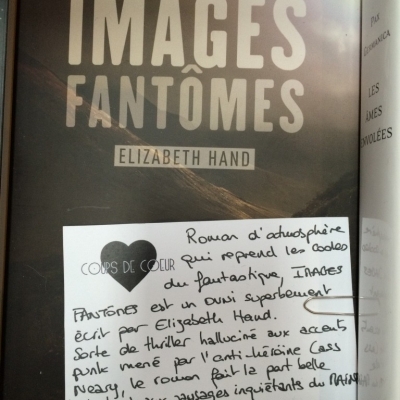 IMAGES
FANTÔMES
ELIZABETH HAND
PAR
LES
ÂMES
ENVOLÉES
COUPS DE COEUR
Roman d'atmosphère
qui reprend les codes
du fantastique, IMAGES
FANTÔMES est un aussi superbement
écrit par Elizabeth Hand.
Sorte de thriller halluciné aux accents
punk mené par l'anti-héroïne Cass
Neary, le roman fait la part belle
paysages inquiétants du MAINE